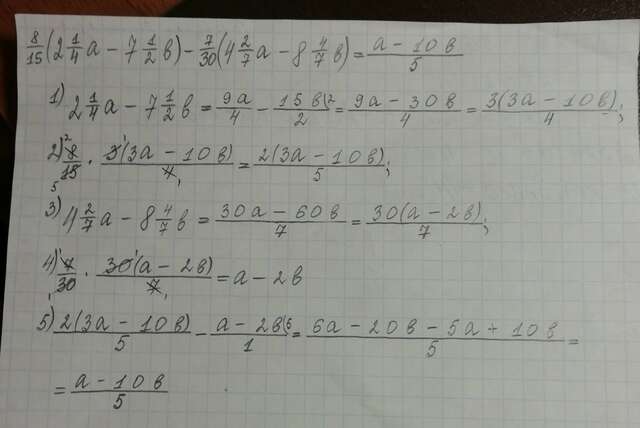 8/15(2 1/4 а - 7 1/2 в) - 7/30(4 2/7 а - 8 4/7 в) = а - 10в/5
1) 2 1/4 а - 7 1/2 в = 9а/4 - 15в\2/2 = 9а - 30в/4 = 3(3а - 10в)/4;
2) 8 2/15 5 · 3 1(3а - 10в)/4 1 = 2(3а - 10в)/5;
3) 4 2/7 а - 8 4/7 в = 30а - 60в/7 = 30(а - 2в)/7;
4) 7 1/30 1 · 30 1(а - 2в)/7 1 = а - 2в
5) 2(3а - 10в)/5 - а - 2в\5/1 = 6а - 20в - 5а + 10в/5 =
= а - 10в/5